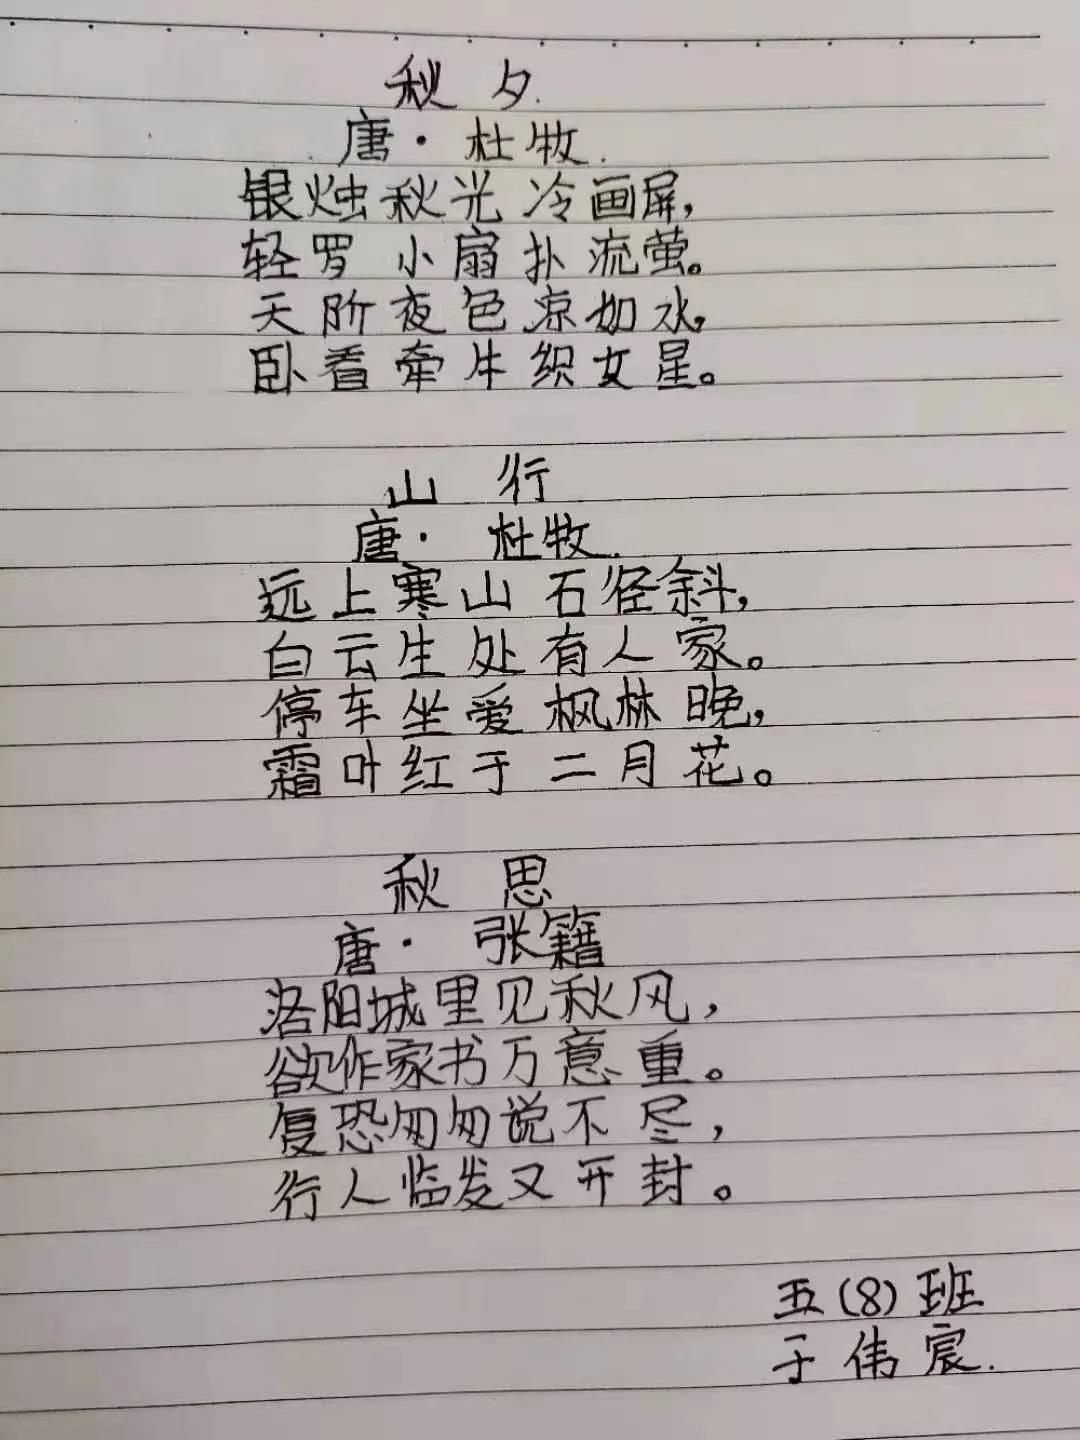 秋夕.
唐·杜牧.
银烛秋光冷画屏,
轻罗小扇扑流萤。
天阶夜色凉如水,
卧看牵牛织女星。
山行
唐·杜牧.
远上寒山石径斜,
白云生处有人家。
停车坐爱枫林晚,
霜叶红于二月花。
秋思
唐·张籍
洛阳城里见秋风,
欲作家书万意重。
复恐匆匆说不尽,
行人临发又开封。
五(8)班
于伟宸.